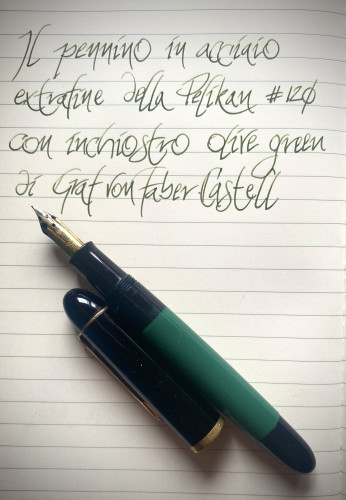 Il pennino in acciaio
extrafine della Pelikan #120
con inchiostro olive green
di Graf von Faber Castell